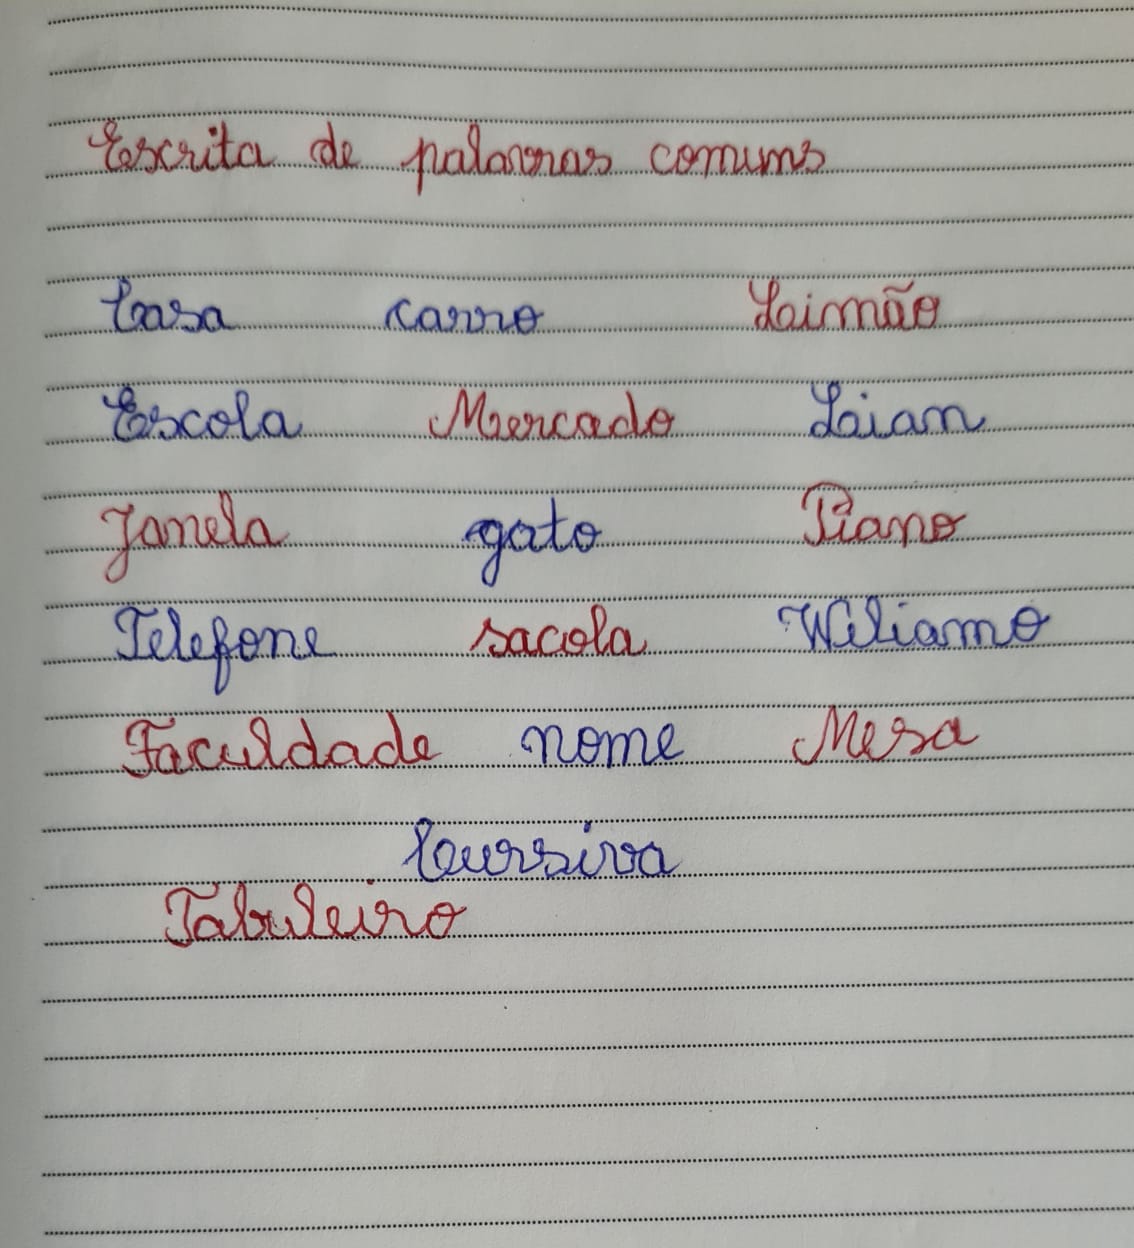 Escrita de palavras comums
Casa carro Limão
Escola Mercado Liam
Janela gato Piano
Telefone sacola Wiliamo
Faculdade nome Mesa
Cursiva
Tabuleiro